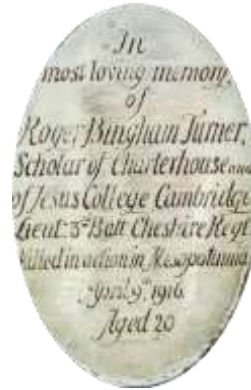 In
most loving memory
of
Roger Bingham Turner,
Scholar of Charterhouse and
of Jesus College Cambridge
Lieut. 3rd Batt Cheshire Regt
Killed in action in Mesopotamia
April 9th 1916
Aged 20